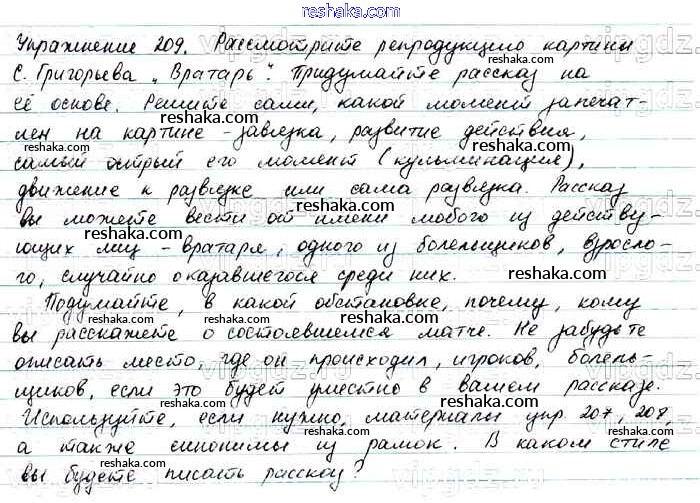 reshaka.com
Упражнение 209. Рассмотрите репродукцию картины
С. Григорьева „Вратарь". Придумайте рассказ на
её основе. Решите сами, какой момент запечат-
лен на картине - завязка, развитие действия,
самый острый его момент (кульминация),
движение к развязке или сама развязка. Рассказ
вы можете вести от имени любого из действу-
ющих лиц - вратаря, одного из болельщиков, взросло-
го, случайно оказавшегося среди них.
Подумайте, в какой обстановке, почему, кому
вы расскажете о состоявшемся матче. Не забудьте
описать место, где он происходил, игроков, болель-
щиков, если это будет уместно в вашем рассказе.
Используйте, если нужно, материалы упр. 207, 208,
а также синонимы из рамок. В каком стиле
вы будете писать рассказ?
reshaka.com